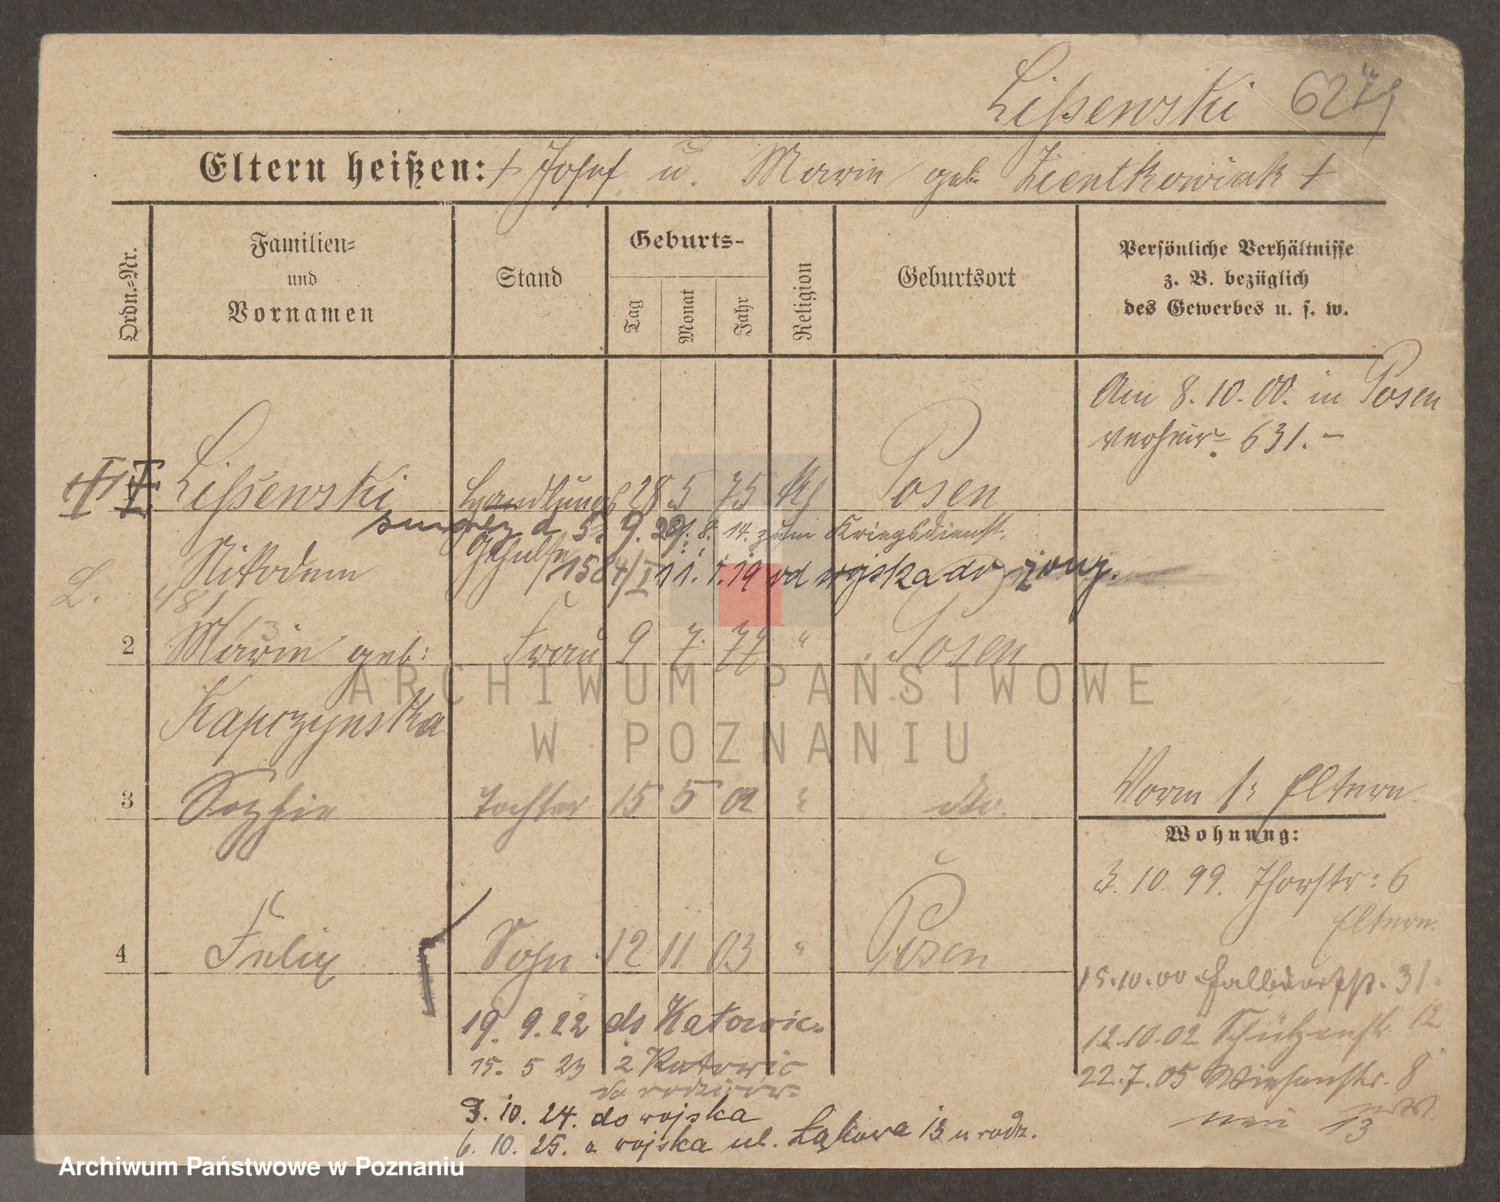 Lißewski 6279
Eltern heißen: + Josef u. Marie geb. Zientkowiak +
Ordn.-Nr.
Familien-
und
Vornamen
Stand
Geburts-
Tag
Monat
Jahr
Religion
Geburtsort
Persönliche Verhältnisse
z. B. bezüglich
des Gewerbes u. s. w.
Am 8.10.00. in Posen
verheir. 631.-
Lißewski Handlungs 28 5 75 kt Posen
5. 9. 8. 14. zum Kriegsdienst.
Nikodem Gehülfe
11. 1. 19 od wojska do żony.
L.
2 Marie geb: Frau 9 7. 77 " Posen
Kaprzynska
3 Sophie Tochter 15 5 02 " do.
Vorm fr Eltern
Wohnung:
3. 10. 99. Thorstr: 6
Eltern.
4 Felix Sohn 12 11 03 " Posen
15.10.00 31.
19. 9. 22 do Katowic.
12.10.02 Schützenstr. 12
15. 5 23 z Katowic
22.7.05 Wiesenstr. 8
do rodziców
neu 13
3. 10. 24. do wojska
6. 10. 25. z wojska ul. Łąkowa 13 u rodz.
ARCHIWUM PAŃSTWOWE
W POZNANIU
Archiwum Państwowe w Poznaniu